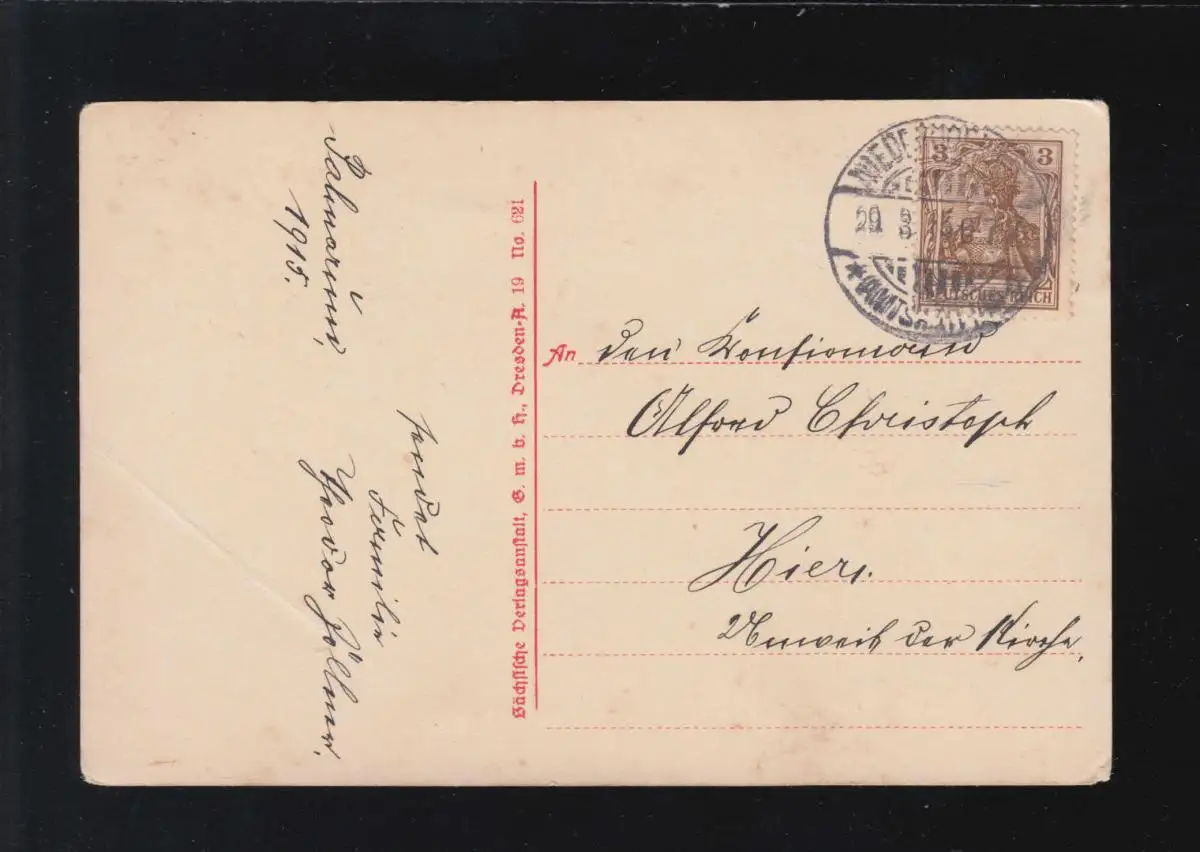 Palmarum,
1915.
sendet
Familie
Theodor Zöllner.
Sächsische Verlagsanstalt, G. m. b. H., Dresden-A. 19 No. 621
3 3
DEUTSCHES REICH
29 3 15
An den Konfirmand
Alfred Christoph
Hier.
Unweit der Kirche.